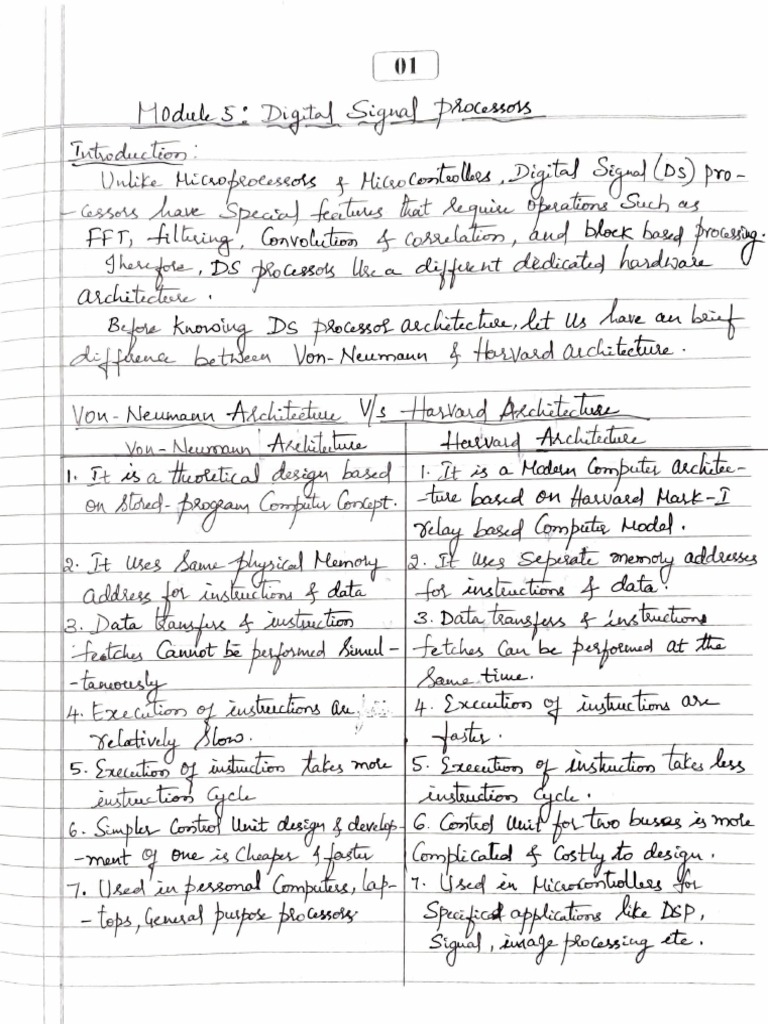 01
Module 5: Digital Signal processors
Introduction:
Unlike Microprocessors & Microcontrollers, Digital Signal (DS) pro-
-cessors have Special features that require operations Such as
FFT, filtering, Convolution & correlation, and block based processing.
Therefore, DS processors Use a different dedicated hardware
architecture.
Before knowing DS processor architecture, let Us have an brief
difference between Von-Neumann & Harvard architecture.
Von-Neumann Architecture V/s Harvard Architecture
Von-Neumann Architecture
Harvard Architecture
1. It is a theoretical design based
on Stored-program Computer Concept.
1. It is a Modern Computer architec-
-ture based on Harvard Mark-I
relay based Computer Model.
2. It Uses Same physical Memory
address for instructions & data
2. It Uses Seperate memory addresses
for instructions & data.
3. Data transfers & instruction
featches Cannot be performed Simul-
-taneously
3. Data transfers & instructions
fetches Can be performed at the
Same time.
4. Execution of instructions are
relatively Slow.
4. Execution of instructions are
faster.
5. Execution of instuction takes more
instruction Cycle
5. Execution of instruction takes less
instruction Cycle.
6. Simpler Control Unit design & develop-
-ment of one is Cheaper & faster
6. Control Unit for two buses is more
Complicated & Costly to design.
7. Used in personal Computers, lap-
-tops, General purpose processors
7. Used in Microcontrollers for
Specifical applications like DSP,
Signal, image processing etc.